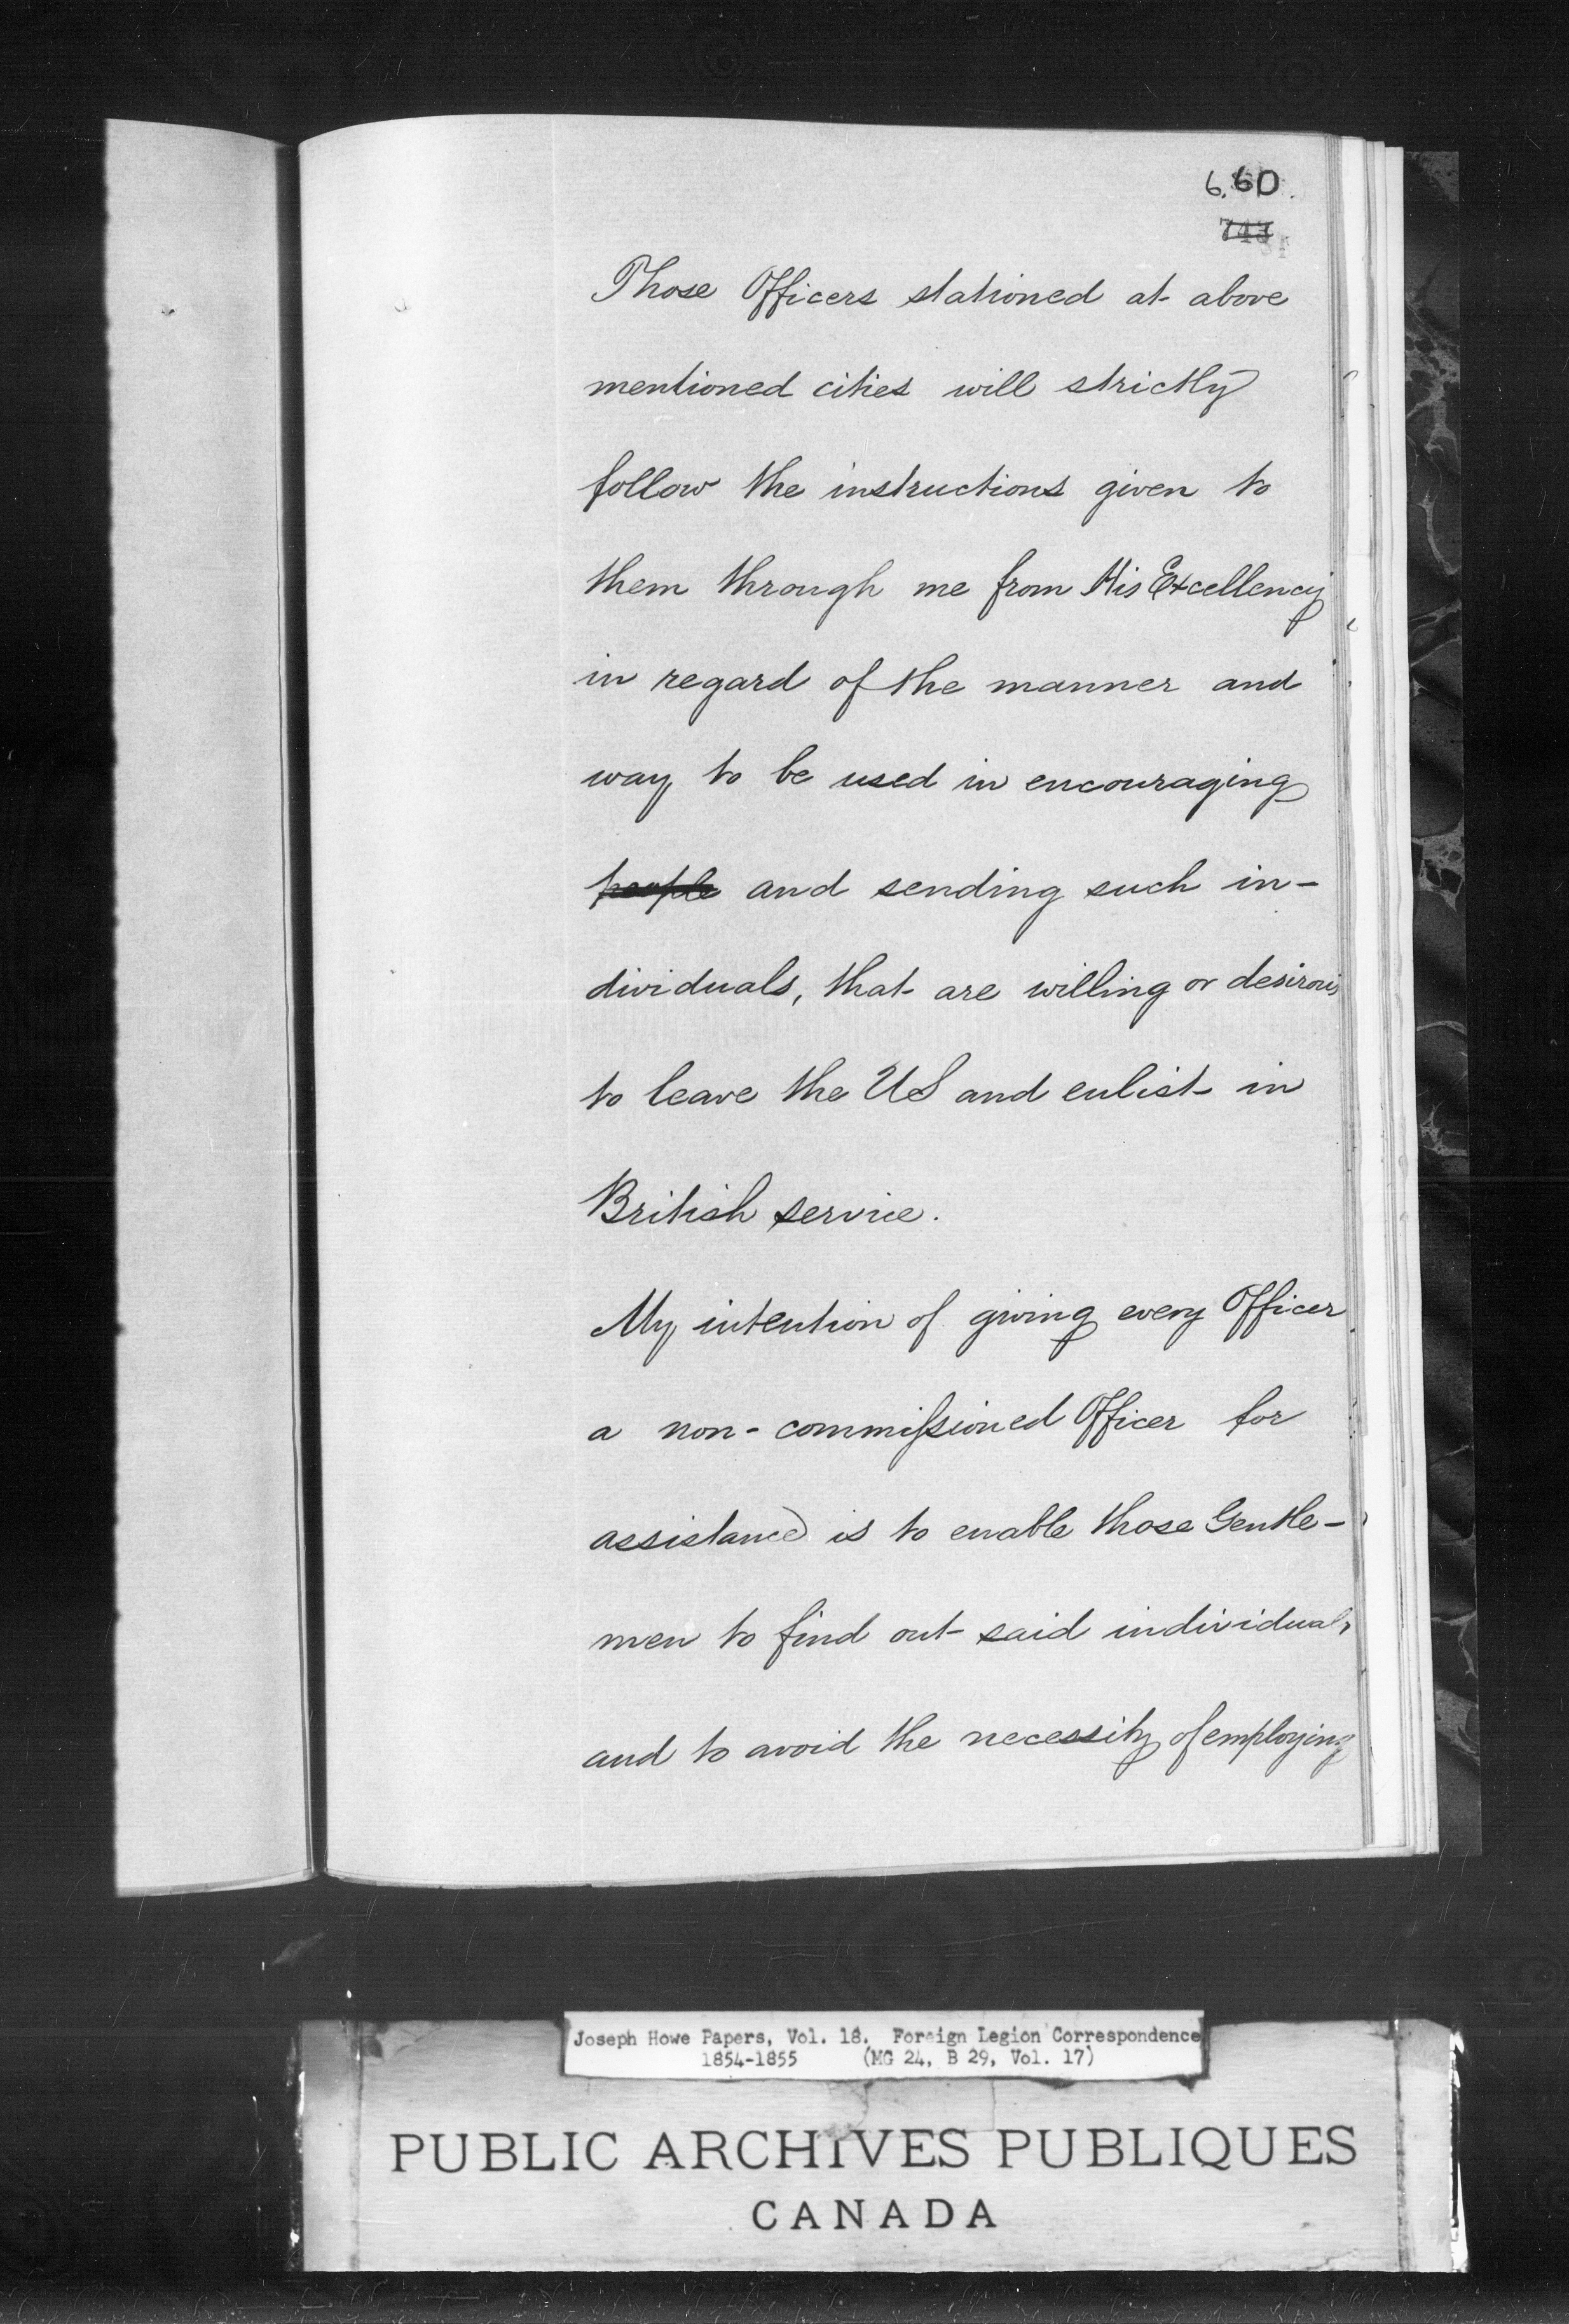 6.60.
743
Those Officers stationed at above
mentioned cities will strictly
follow the instructions given to
them through me from His Excellency
in regard of the manner and
way to be used in encouraging
people and sending such in-
dividuals, that are willing or desirous
to leave the US and enlist in
British service.
My intention of giving every Officer
a non-commissioned Officer for
assistance is to enable those Gentle-
men to find out said individuals,
and to avoid the necessity of employing
Joseph Howe Papers, Vol. 18. Foreign Legion Correspondence
1854-1855 (MG 24, B 29, Vol. 17)
PUBLIC ARCHIVES PUBLIQUES
CANADA